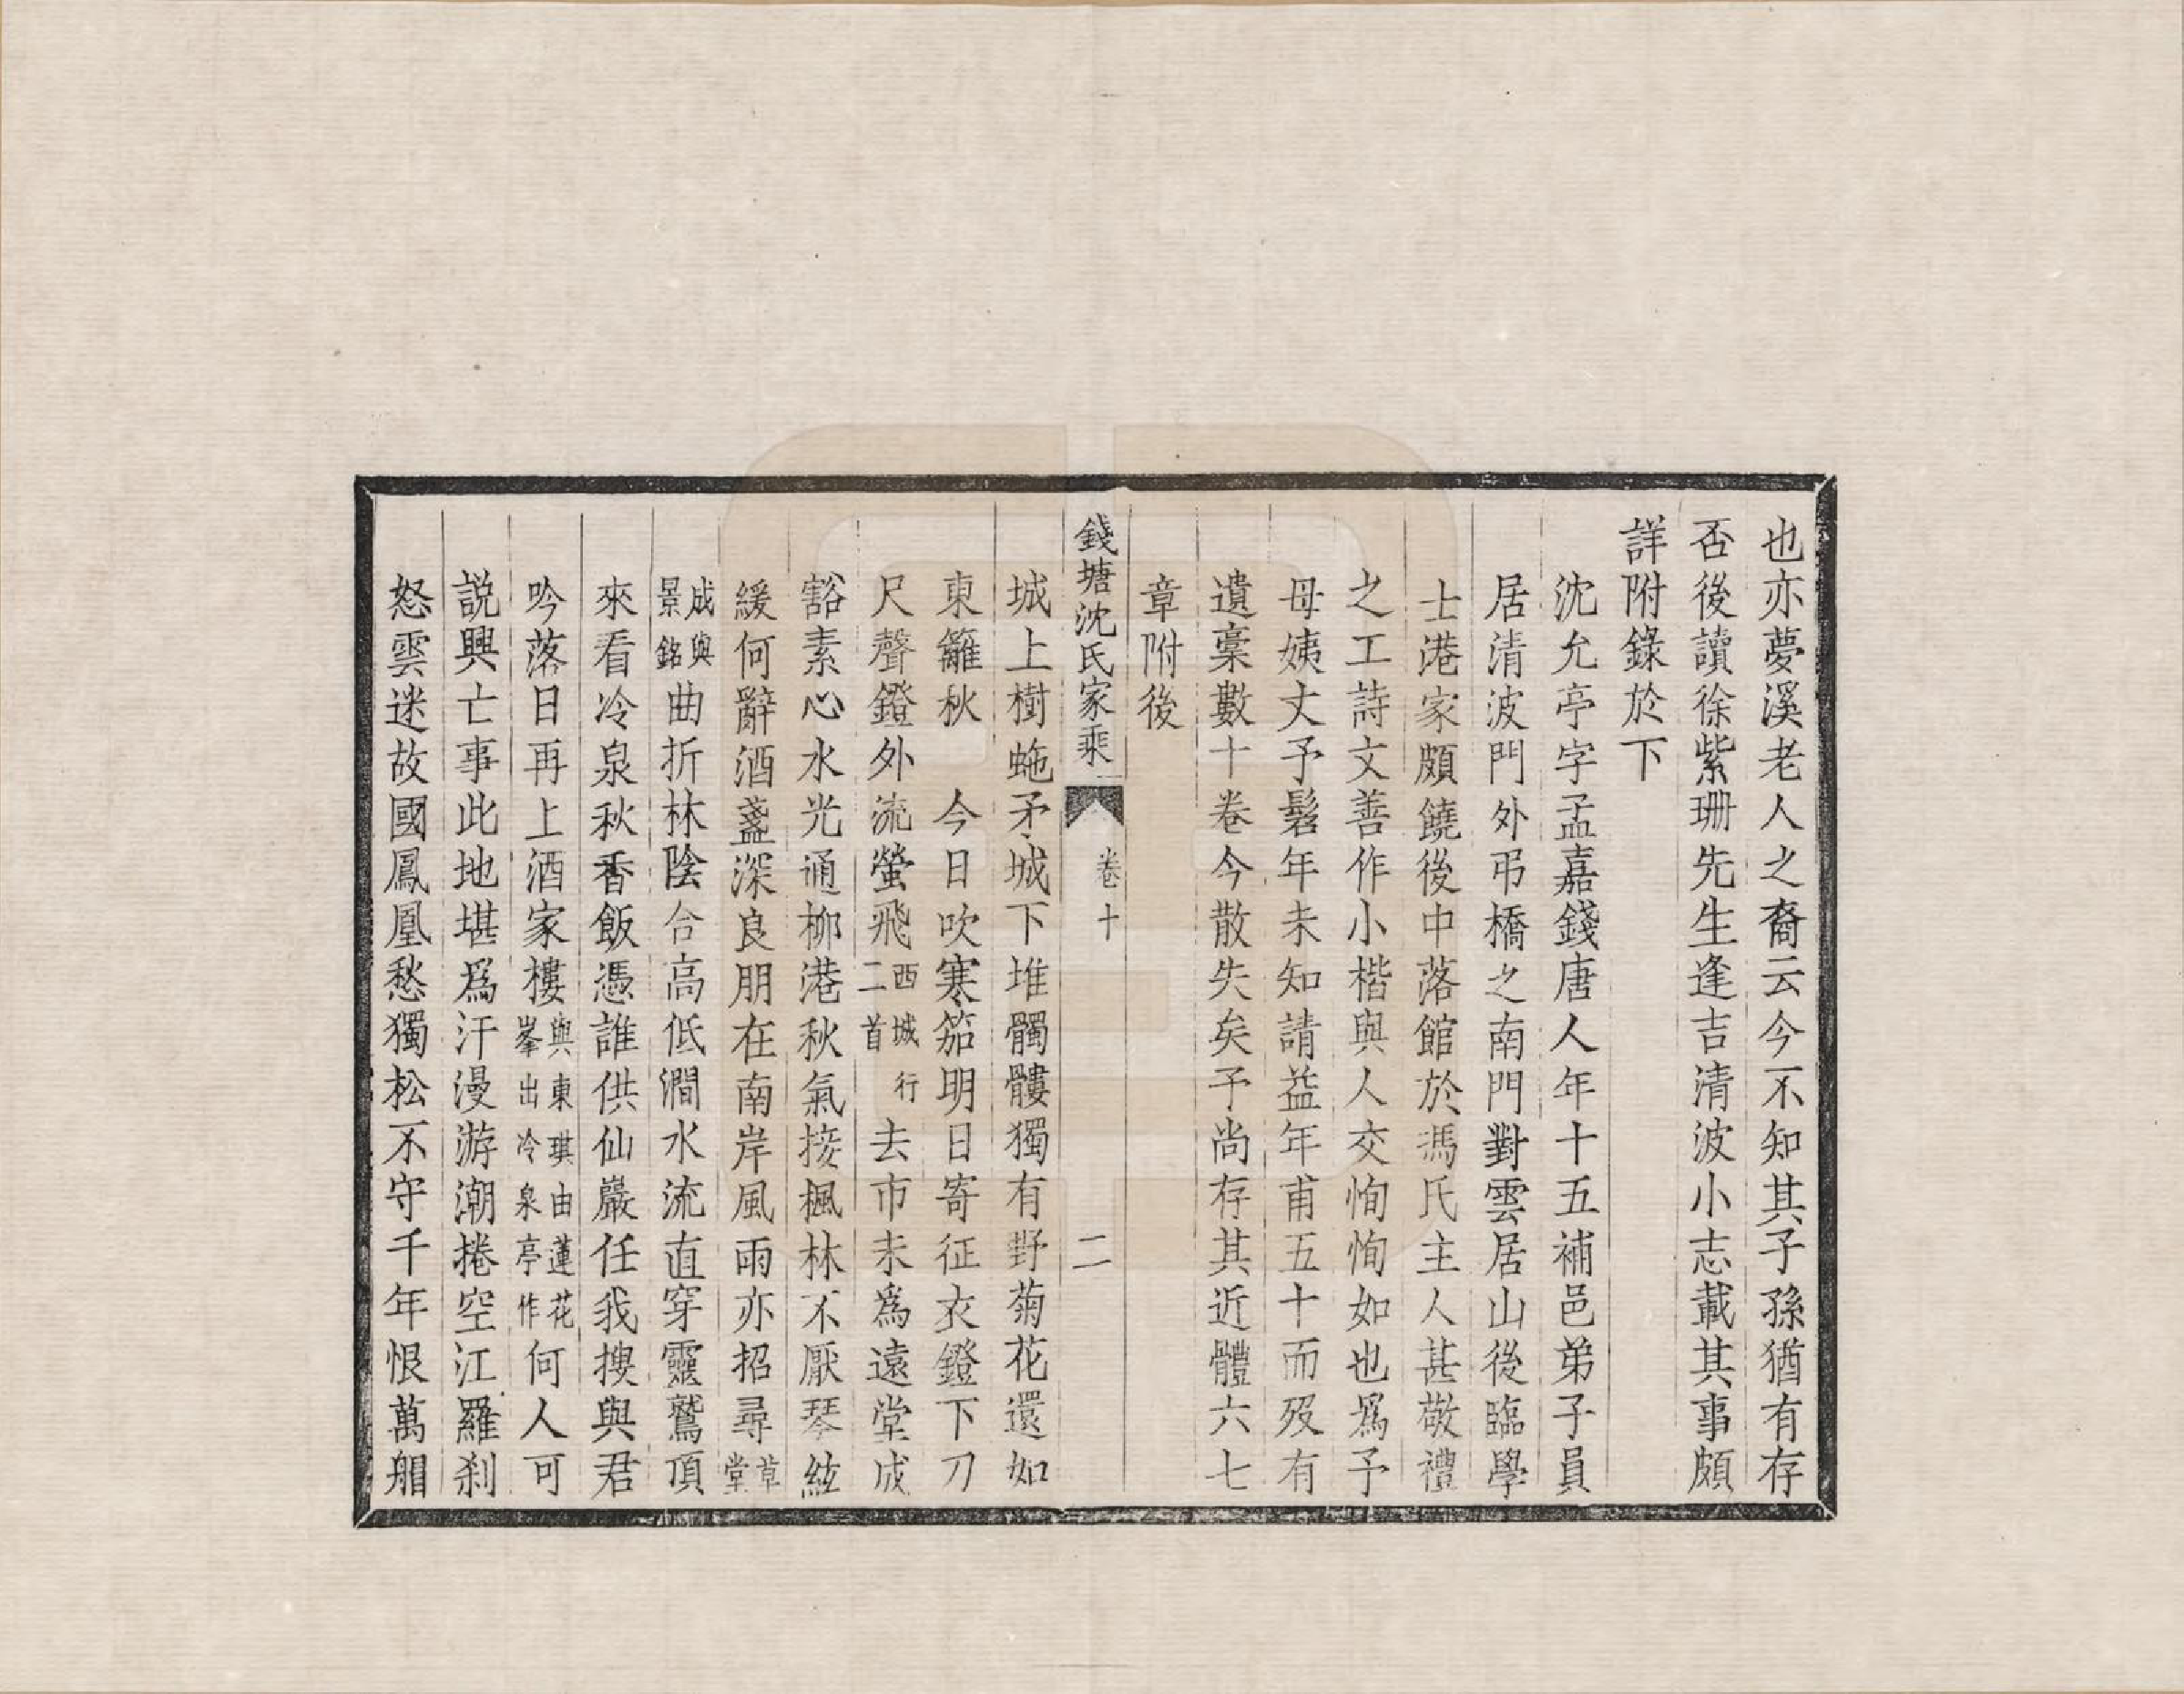 也亦夢溪老人之裔云今不知其子孫猶有存
否後讀徐紫珊先生逢吉清波小志載其事頗
詳附錄於下
沈允亭字孟嘉錢唐人年十五補邑弟子員
居清波門外弔橋之南門對雲居山後臨學
士港家頗饒後中落館於馮氏主人甚敬禮
之工詩文善作小楷與人交恂恂如也爲予
母姨丈予髫年未知請益年甫五十而歿有
遺稾數十卷今散失矣予尚存其近體六七
章附後
錢塘沈氏家乘 卷十 二
城上樹虵矛城下堆髑髏獨有野菊花還如
東籬秋 今日吹寒笳明日寄征衣鐙下刀
尺聲鐙外流螢飛西城行二首去市未爲遠堂成
豁素心水光通柳港秋氣接楓林不厭琴絃
緩何辭酒盞深良朋在南岸風雨亦招尋草堂
成與景銘曲折林陰合高低澗水流直穿靈鷲頂
來看冷泉秋香飯憑誰供仙巖任我搜與君
吟落日再上酒家樓與東琪由蓮花峯出冷泉亭作何人可
説興亡事此地堪爲汗漫游潮捲空江羅刹
怒雲迷故國鳳凰愁獨松不守千年恨萬艒